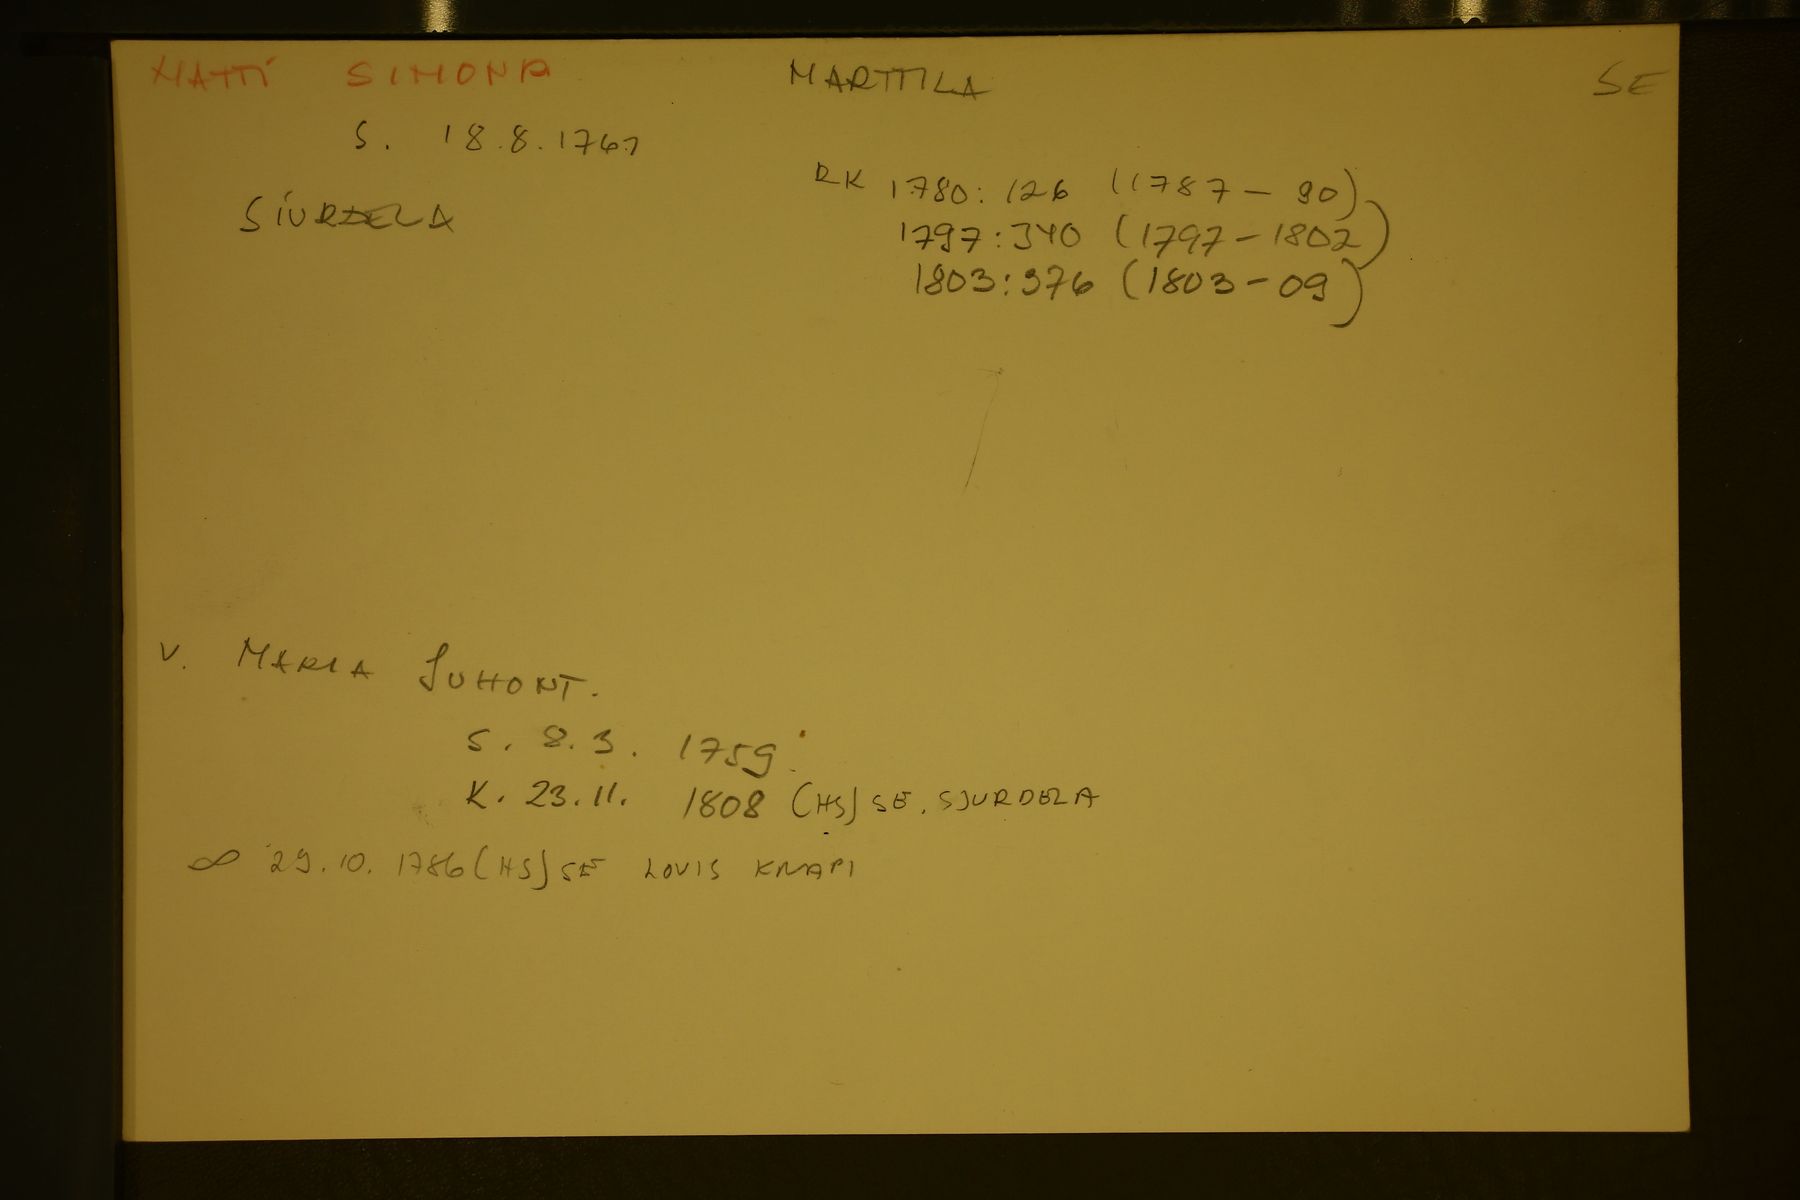 MATTI SIMONP MARTTILA SE
S. 18.8.1761
SIURDELA
RK 1780:126 (1787-90)
1797:340 (1797-1802)
1803:376 (1803-09)
V. MARIA JUHONT.
S. 8.3. 1759.
K. 23.11. 1808 (HS) SE. SJURDELA
∞ 29.10. 1786 (HS) SE LOVIS KNAPI